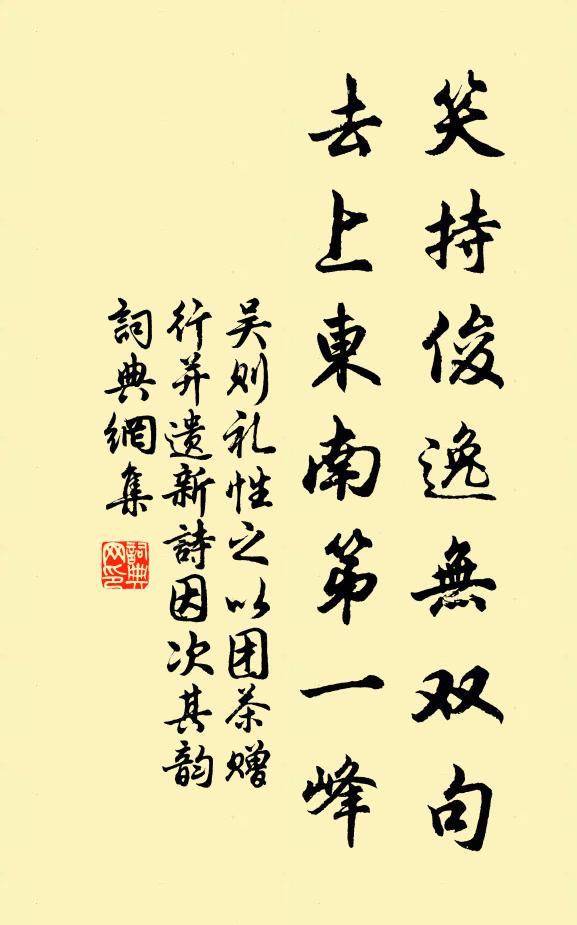 笑持俊逸無双句
去上東南第一峰
吴则礼性之以团茶赠
行并遗新詩因次其韵
詞典網集
詞典网印